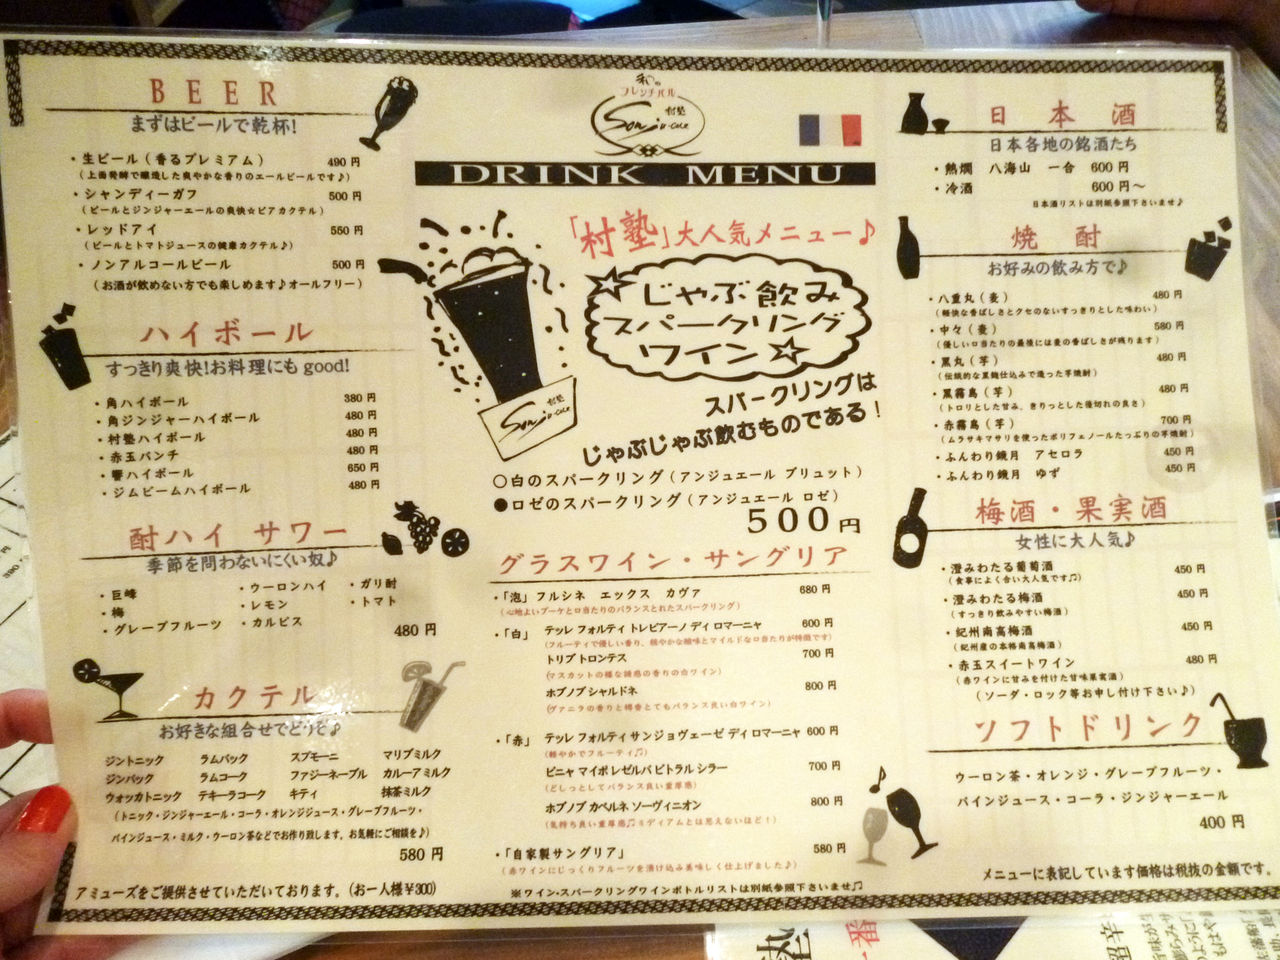 BEER
まずはビールで乾杯!
・生ビール(香るプレミアム) 490 円
(上面発酵で醸造した爽やかな香りのエールビールです♪)
・シャンディーガフ 500 円
(ビールとジンジャーエールの爽快☆ビアカクテル)
・レッドアイ 550 円
(ビールとトマトジュースの健康カクテル♪)
・ノンアルコールビール 500 円
(お酒が飲めない方でも楽しめます♪オールフリー)
ハイボール
すっきり爽快!お料理にも good!
・角ハイボール 380 円
・角ジンジャーハイボール 480 円
・村塾ハイボール 480 円
・赤玉パンチ 480 円
・響ハイボール 650 円
・ジムビームハイボール 480 円
酎ハイ サワー
季節を問わないにくい奴♪
・巨峰 ・ウーロンハイ ・ガリ酎
・梅 ・レモン ・トマト
・グレープフルーツ ・カルピス
480 円
カクテル
お好きな組合せでどうぞ♪
ジントニック ラムバック スプモーニ マリブミルク
ジンバック ラムコーク ファジーネーブル カルーアミルク
ウォッカトニック テキーラコーク キティ 抹茶ミルク
(トニック・ジンジャーエール・コーラ・オレンジジュース・グレープフルーツ・
パインジュース・ミルク・ウーロン茶などでお作り致します。お気軽にご相談を♪)
580 円
アミューズをご提供させていただいております。(お一人様¥300)
和の
フレンチバル
村塾
Son
DRINK MENU
「村塾」大人気メニュー♪
☆じゃぶ飲み
スパークリング
ワイン☆
村塾
Son
スパークリングは
じゃぶじゃぶ飲むものである!
○白のスパークリング(アンジュエール ブリュット)
●ロゼのスパークリング(アンジュエール ロゼ)
500円
グラスワイン・サングリア
・「泡」フルシネ エックス カヴァ 680 円
(心地よいブーケと口当たりのバランスとれたスパークリング)
・「白」 テッレ フォルティ トレビアーノ ディ ロマーニャ 600 円
(フルーティで優しい香り、穏やかな酸味とマイルドな口当たりが特徴です)
トリブ トロンテス 700 円
(マスカットの様な誘惑の香りの白ワイン)
ホブノブ シャルドネ 800 円
(ヴァニラの香りと樽香とてもバランス良い白ワイン)
・「赤」 テッレ フォルティ サンジョヴェーゼ ディ ロマーニャ 600 円
(軽やかでフルーティ♫)
ビニャ マイポ レゼルバ ビトラル シラー 700 円
(どしっとしてバランス良い重厚感)
ホブノブ カベルネ ソーヴィニオン 800 円
(気持ち良い重厚感♫ミディアムとは思えないほど!)
・「自家製サングリア」 580 円
(赤ワインにじっくりフルーツを漬け込み美味しく仕上げました♪)
※ワイン・スパークリングワインボトルリストは別紙参照下さいませ♫
日本酒
日本各地の銘酒たち
・熱燗 八海山 一合 600 円
・冷酒 600 円～
日本酒リストは別紙参照下さいませ♪
焼酎
お好みの飲み方で♪
・八重丸(麦) 480 円
(軽快な香ばしさとクセのないすっきりとした味わい)
・中々(麦) 580 円
(優しい口当たりの最後には麦の香ばしさが残ります)
・黒丸(芋) 480 円
(伝統的な黒麹仕込みで造った芋焼酎)
・黒霧島(芋) 480 円
(トロリとした甘み、きりっとした後切れの良さ)
・赤霧島(芋) 700 円
(ムラサキマサリを使ったポリフェノールたっぷりの芋焼酎)
・ふんわり鏡月 アセロラ 450 円
・ふんわり鏡月 ゆず 450 円
梅酒・果実酒
女性に大人気♪
・澄みわたる葡萄酒 450 円
(食事によく合い大人気です♫)
・澄みわたる梅酒 450 円
(すっきり飲みやすい梅酒)
・紀州南高梅酒 450 円
(紀州産の本格南高梅酒)
・赤玉スイートワイン 480 円
(赤ワインに甘みを付けた甘味果実酒)
(ソーダ・ロック等お申し付け下さい♪)
ソフトドリンク
ウーロン茶・オレンジ・グレープフルーツ・
パインジュース・コーラ・ジンジャーエール
400 円
メニューに表記しています価格は税抜の金額です。